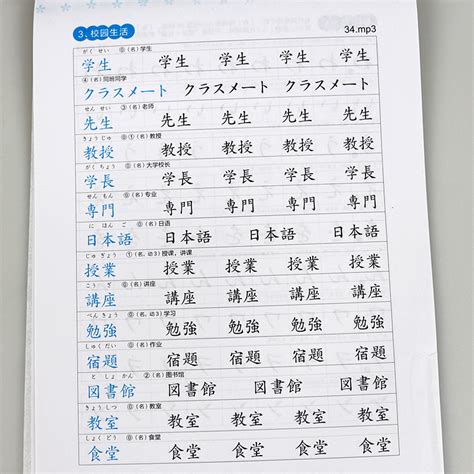 3、校园生活 34.mp3
がく せい ⓪(名)学生
学生 学生 学生 学生 学生
④(名)同班同学
クラスメート クラスメート クラスメート
せん せい ③(名)老师
先生 先生 先生 先生 先生
きょうじゅ ⓪①(名)教授
教授 教授 教授 教授 教授
がく ちょう ⓪(名)大学校长
学長 学長 学長 学長 学長
せん もん ⓪(名)专业
専門 専門 専門 専門 専門
に ほん ご ⓪(名)日语
日本語 日本語 日本語 日本語
じゅ ぎょう ①(名,动3)授课,讲课
授業 授業 授業 授業 授業
こう ざ ⓪(名)讲座
講座 講座 講座 講座 講座
べん きょう ⓪(名,动3)学习
勉強 勉強 勉強 勉強 勉強
しゅく だい ⓪(名)作业
宿題 宿題 宿題 宿題 宿題
と しょ かん ②(名)图书馆
図書館 図書館 図書館 図書館
きょう しつ ⓪(名)教室
教室 教室 教室 教室 教室
しょく どう ⓪(名)食堂
食堂 食堂 食堂 食堂 食堂